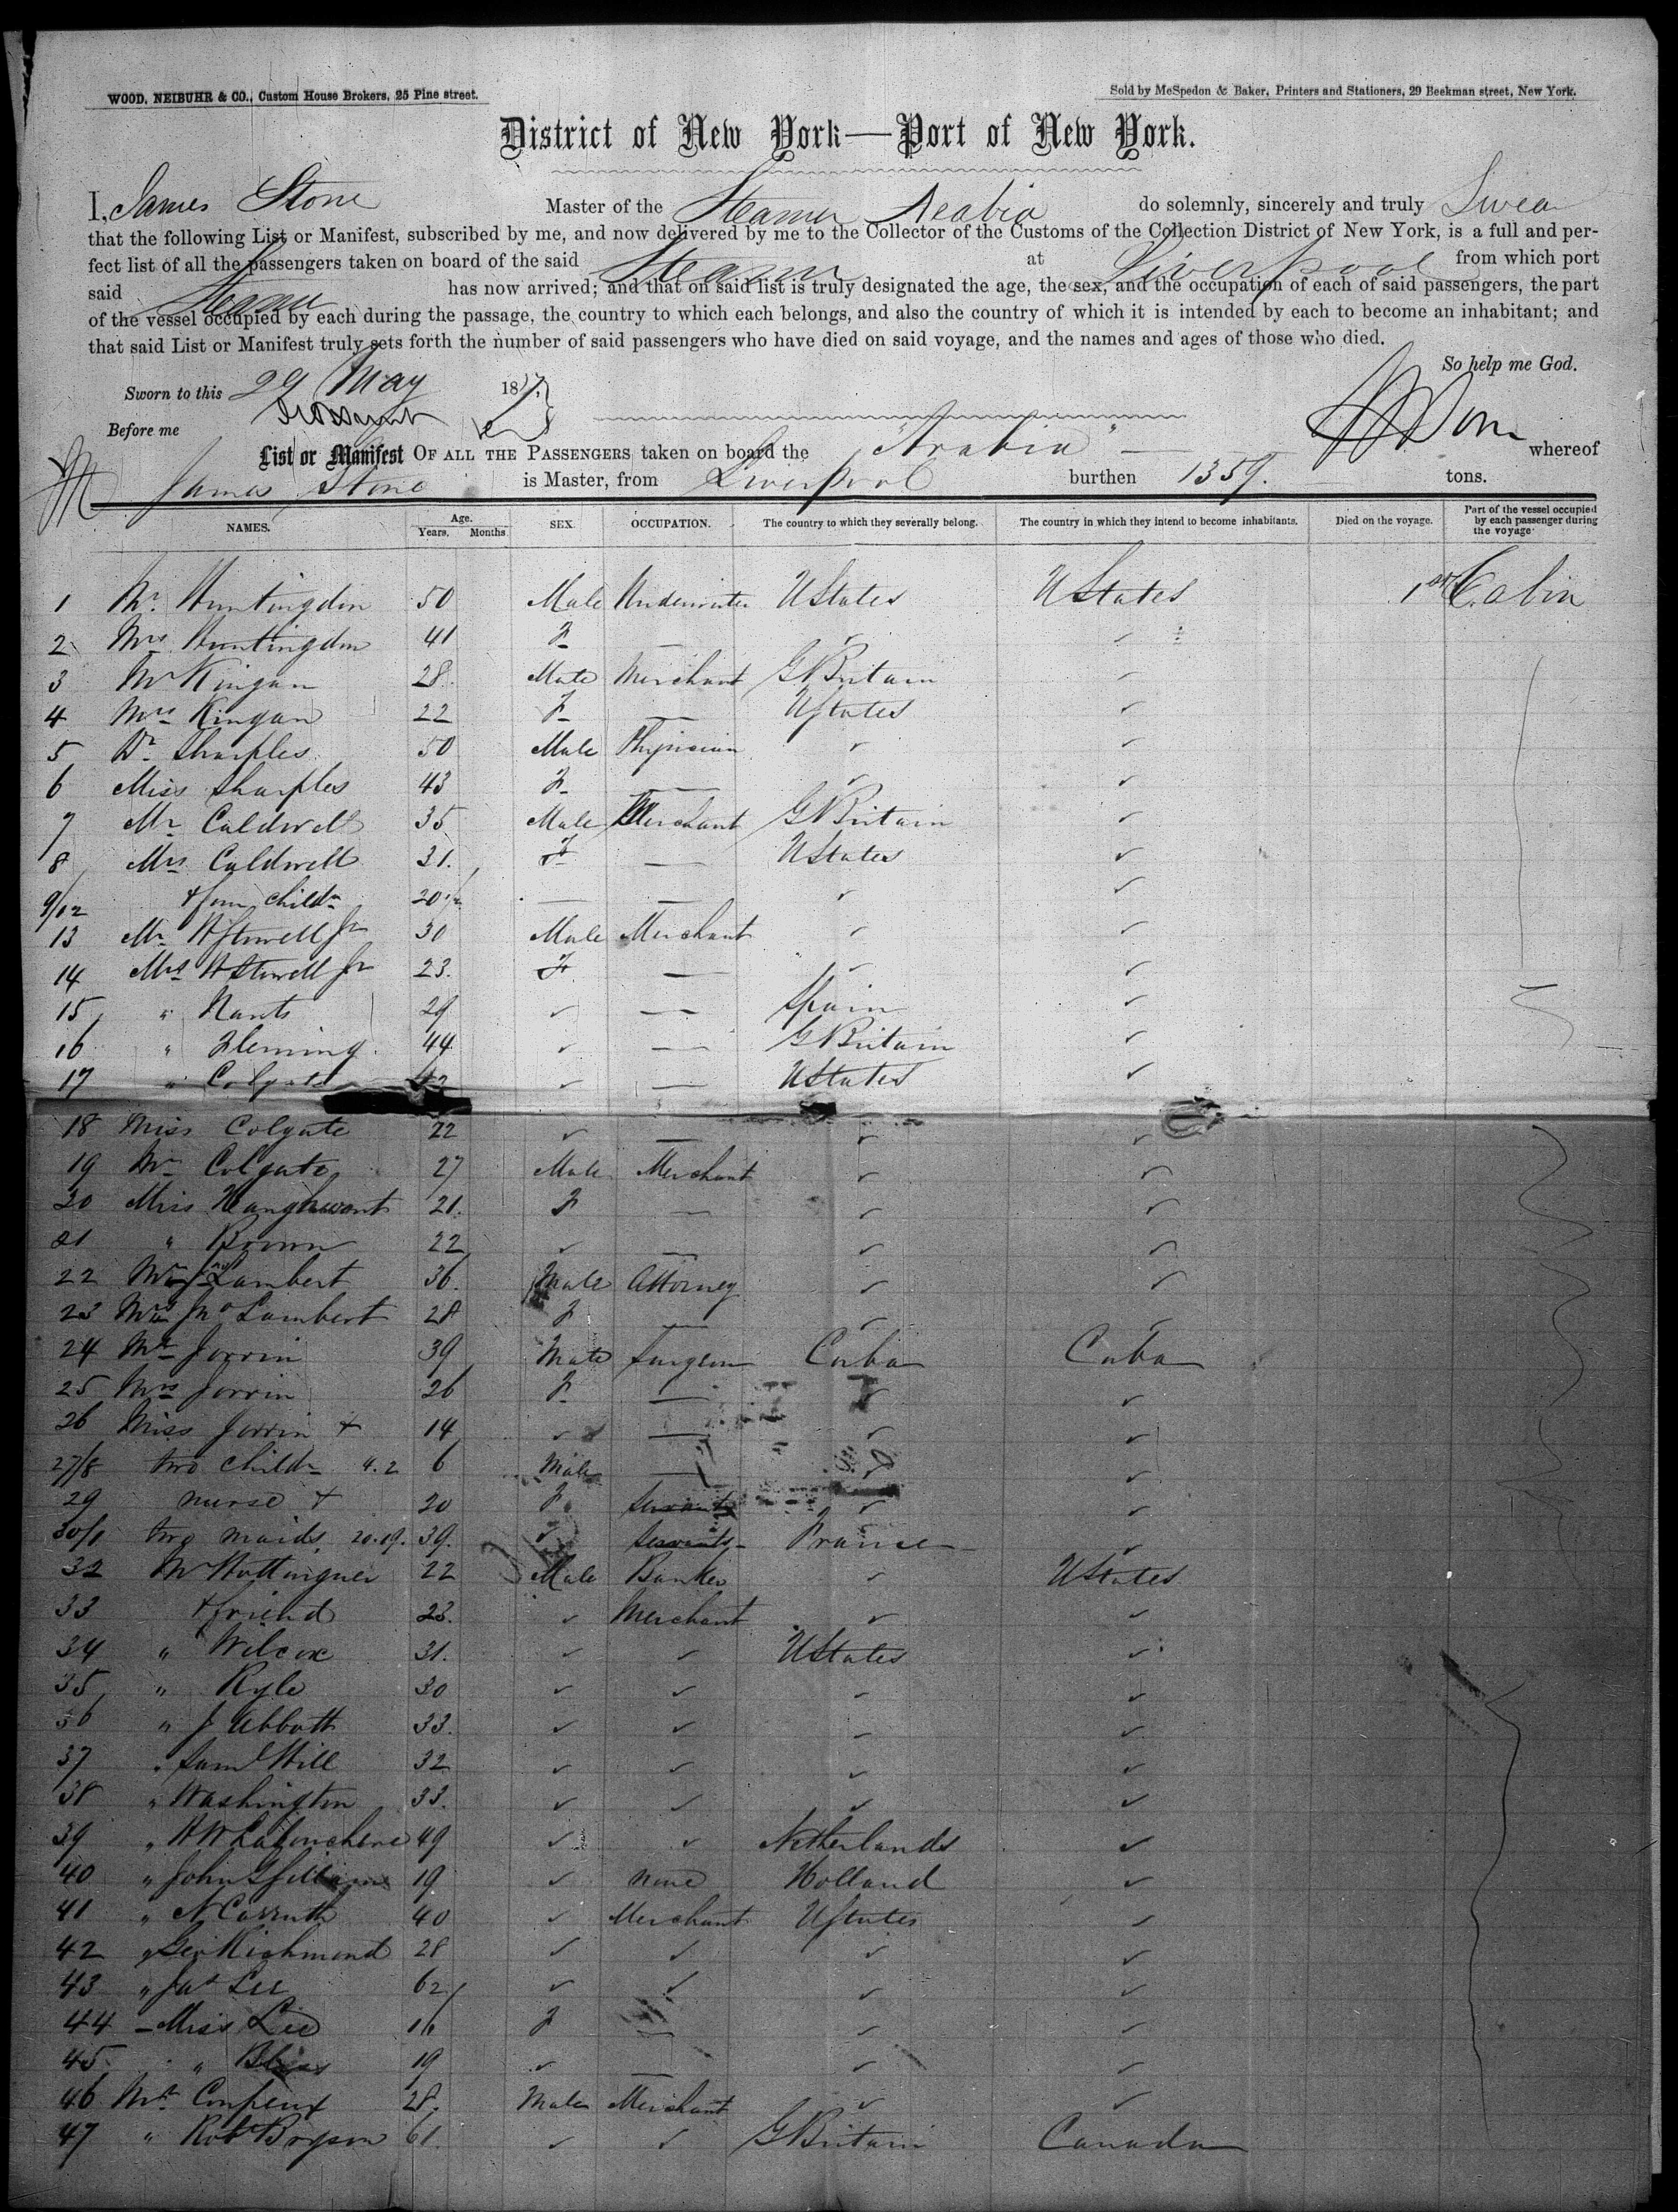 WOOD, NEIBUHR & CO., Custom House Brokers, 25 Pine street.
Sold by McSpedon & Baker, Printers and Stationers, 29 Beekman street, New York.
District of New York—Port of New York.
I, James Stone Master of the Steamer Arabia do solemnly, sincerely and truly Swear
that the following List or Manifest, subscribed by me, and now delivered by me to the Collector of the Customs of the Collection District of New York, is a full and per-
fect list of all the passengers taken on board of the said Steamer at Liverpool from which port
said Steamer has now arrived; and that on said list is truly designated the age, the sex, and the occupation of each of said passengers, the part
of the vessel occupied by each during the passage, the country to which each belongs, and also the country of which it is intended by each to become an inhabitant; and
that said List or Manifest truly sets forth the number of said passengers who have died on said voyage, and the names and ages of those who died.
So help me God.
Sworn to this 29 May 18
Before me
List or Manifest OF ALL THE PASSENGERS taken on board the "Arabia" whereof
James Stone is Master, from Liverpool burthen 1359. tons.
NAMES. Age. Years. Months SEX. OCCUPATION. The country to which they severally belong. The country in which they intend to become inhabitants. Died on the voyage. Part of the vessel occupied by each passenger during the voyage
1 Mr Huntingdon 50 Male Underwriter UStates UStates 1st Cabin
2 Mrs Huntingdon 41 F — ✓ ✓
3 Mr Kingan 28. Male Merchant GBritain ✓
4 Mrs Kingan 22 F — UStates ✓
5 Dr Sharples 50 Male Physician ✓ ✓
6 Miss Sharples 43 F — ✓ ✓
7 Mr Caldwell 35 Male Merchant GBritain ✓
8 Mrs Caldwell 31. F — UStates ✓
9/12 & four childn — — ✓ ✓
13 Mr Stowell Jr 30 Male Merchant ✓ ✓
14 Mrs Stowell Jr 23. F — ✓ ✓
15 " Nants 29 ✓ — Spain ✓
16 " Fleming 44 ✓ — GBritain ✓
17 " Colgate ✓ — UStates ✓
18 Miss Colgate 22 ✓ — ✓ ✓
19 Mr Colgate 27 Male Merchant ✓ ✓
20 Miss Haughwont 21. F — ✓ ✓
21 " Brown 22 ✓ — ✓ ✓
22 Mr Jno Lambert 36. Male Attorney ✓ ✓
23 Mrs Jno Lambert 28 F — ✓ ✓
24 Mr Jorrin 39 Male Surgeon Cuba Cuba
25 Mrs Jorrin 26 F — ✓ ✓
26 Miss Jorrin + 14 ✓ — ✓ ✓
27/8 two childn 4.2 6 Male — ✓ ✓
29 nurse + 20 F Servant ✓ ✓
30/1 two maids 20.19. 39. ✓ Servants France ✓
32 Mr Hottinguer 22 Male Banker ✓ UStates
33 & friend 23. ✓ Merchant ✓ ✓
34 " Wilcox 31. ✓ ✓ UStates ✓
35 " Kyle 30 ✓ ✓ ✓ ✓
36 " J Abbott 33. ✓ ✓ ✓ ✓
37 " Saml Hill 32 ✓ ✓ ✓ ✓
38 " Washington 33. ✓ ✓ ✓ ✓
39 " Labouchere 49 ✓ ✓ Netherlands ✓
40 " John 19 ✓ none Holland ✓
41 " N Carruth 40 ✓ Merchant UStates ✓
42 " Geo Richmond 28 ✓ ✓ ✓ ✓
43 " Jas Lee 62 ✓ ✓ ✓ ✓
44 – Miss Lee 16 F — ✓ ✓
45 " Bliss 19 ✓ — ✓ ✓
46 Mr 28. Male Merchant ✓ ✓
47 " Robt Bryson 61. ✓ ✓ GBritain Canada